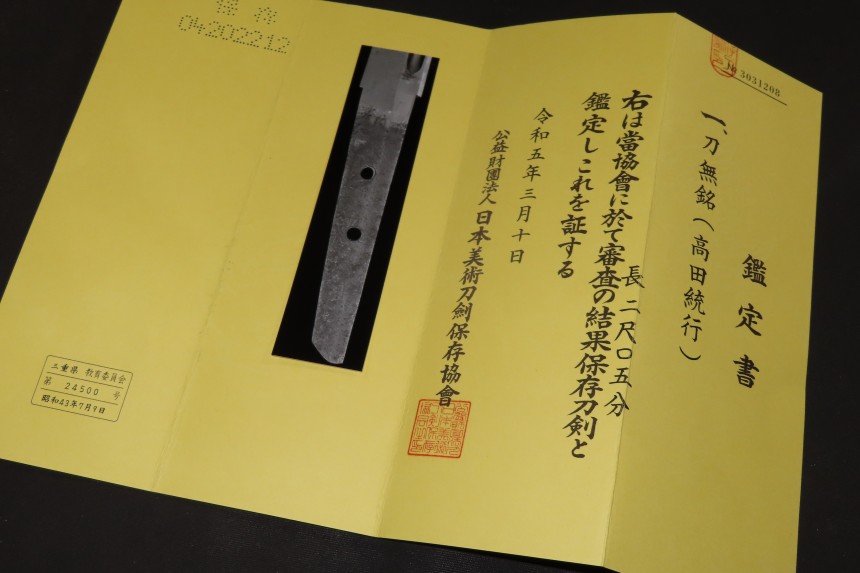 № 3031208
鑑定書
一、刀無銘(高田統行)
長二尺〇五分
右は當協會に於て審査の結果保存刀剣と
鑑定しこれを証する
令和五年三月十日
公益財團法人 日本美術刀劍保存協會
保存
04202212
三重県 教育委員会
第 24500 号
昭和43年7月9日